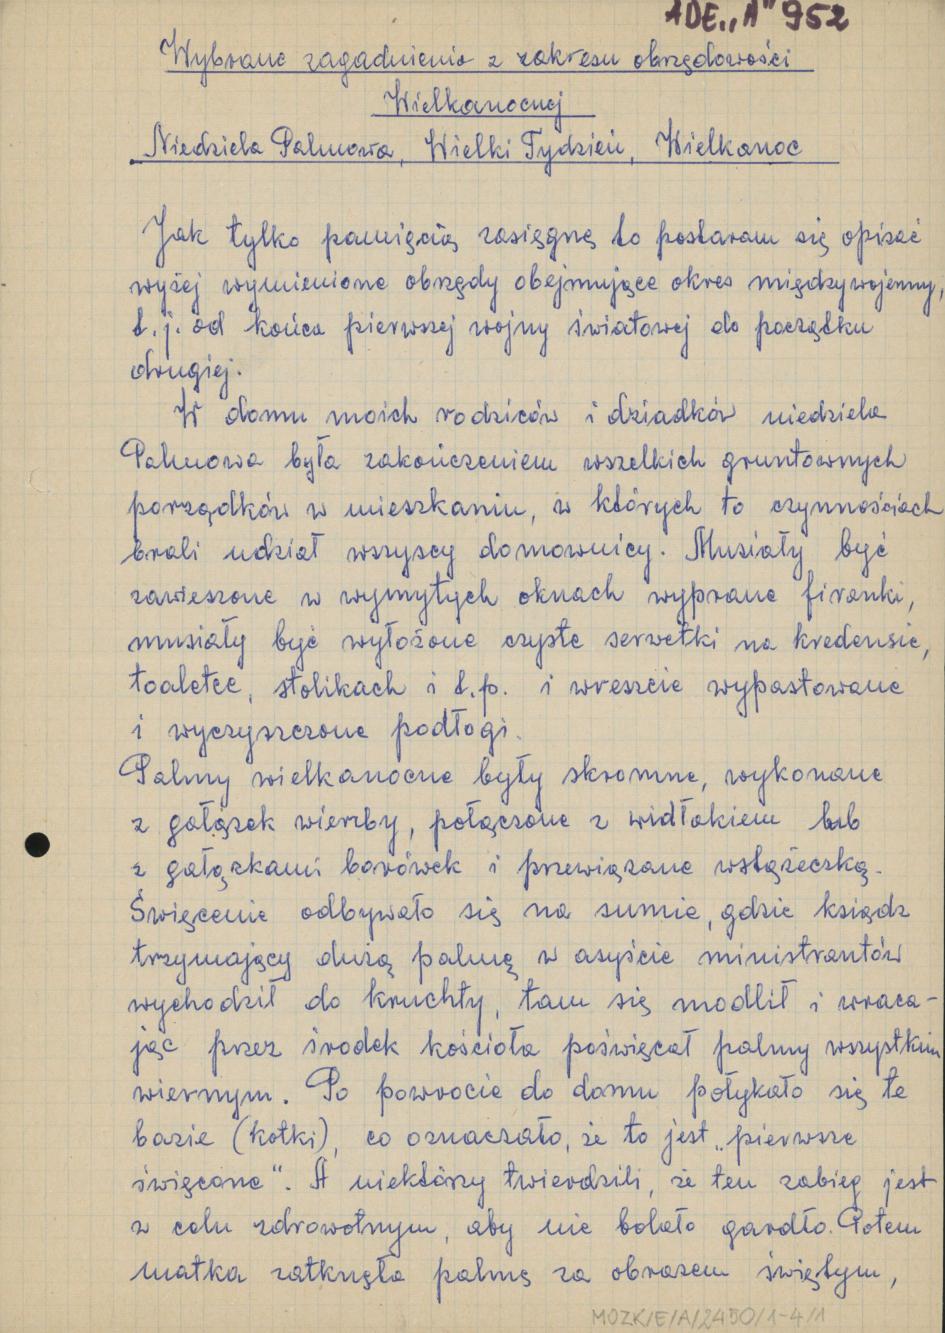 ADE„A” 952
Wybrane zagadnienia z zakresu obrzędowości
Wielkanocnej
Niedziela Palmowa, Wielki Tydzień, Wielkanoc
Jak tylko pamięcią zasięgnę to postaram się opisać
wyżej wymienione obrzędy obejmujące okres międzywojenny,
t.j. od końca pierwszej wojny światowej do początku
drugiej.
W domu moich rodziców i dziadków niedziela
Palmowa była zakończeniem wszelkich gruntownych
porządków w mieszkaniu, w których to czynnościach
brali udział wszyscy domownicy. Musiały być
zawieszone w wymytych oknach wyprane firanki,
musiały być wyłożone czyste serwetki na kredensie,
toaletce, stolikach i t.p. i wreszcie wypastowane
i wyczyszczone podłogi.
Palmy wielkanocne były skromne, wykonane
z gałązek wierzby, połączone z widłakiem lub
z gałązkami borówek i przewiązane wstążeczką.
Święcenie odbywało się na sumie, gdzie ksiądz
trzymający dużą palmę w asyście ministrantów
wychodził do kruchty, tam się modlił i wraca-
jąc przez środek kościoła poświęcał palmy wszystkim
wiernym. Po powrocie do domu połykało się te
bazie (kotki), co oznaczało, że to jest „pierwsze
święcone“. A niektórzy twierdzili, że ten zabieg jest
w celu zdrowotnym, aby nie bolało gardło. Potem
matka zatknęła palmę za obrazem świętym,
MOZK/E/A/2450/1-4/1